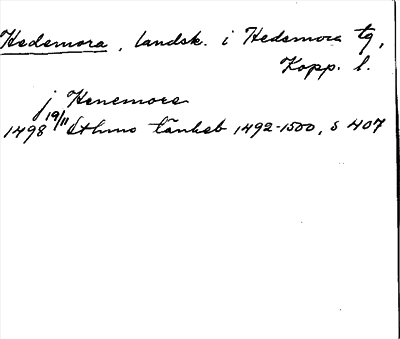 Hedemora, landsk. i Hedemora tg,
Kopp. l.
j Henemora
1498 19/11 Sthms tänkeb 1492-1500, s 407